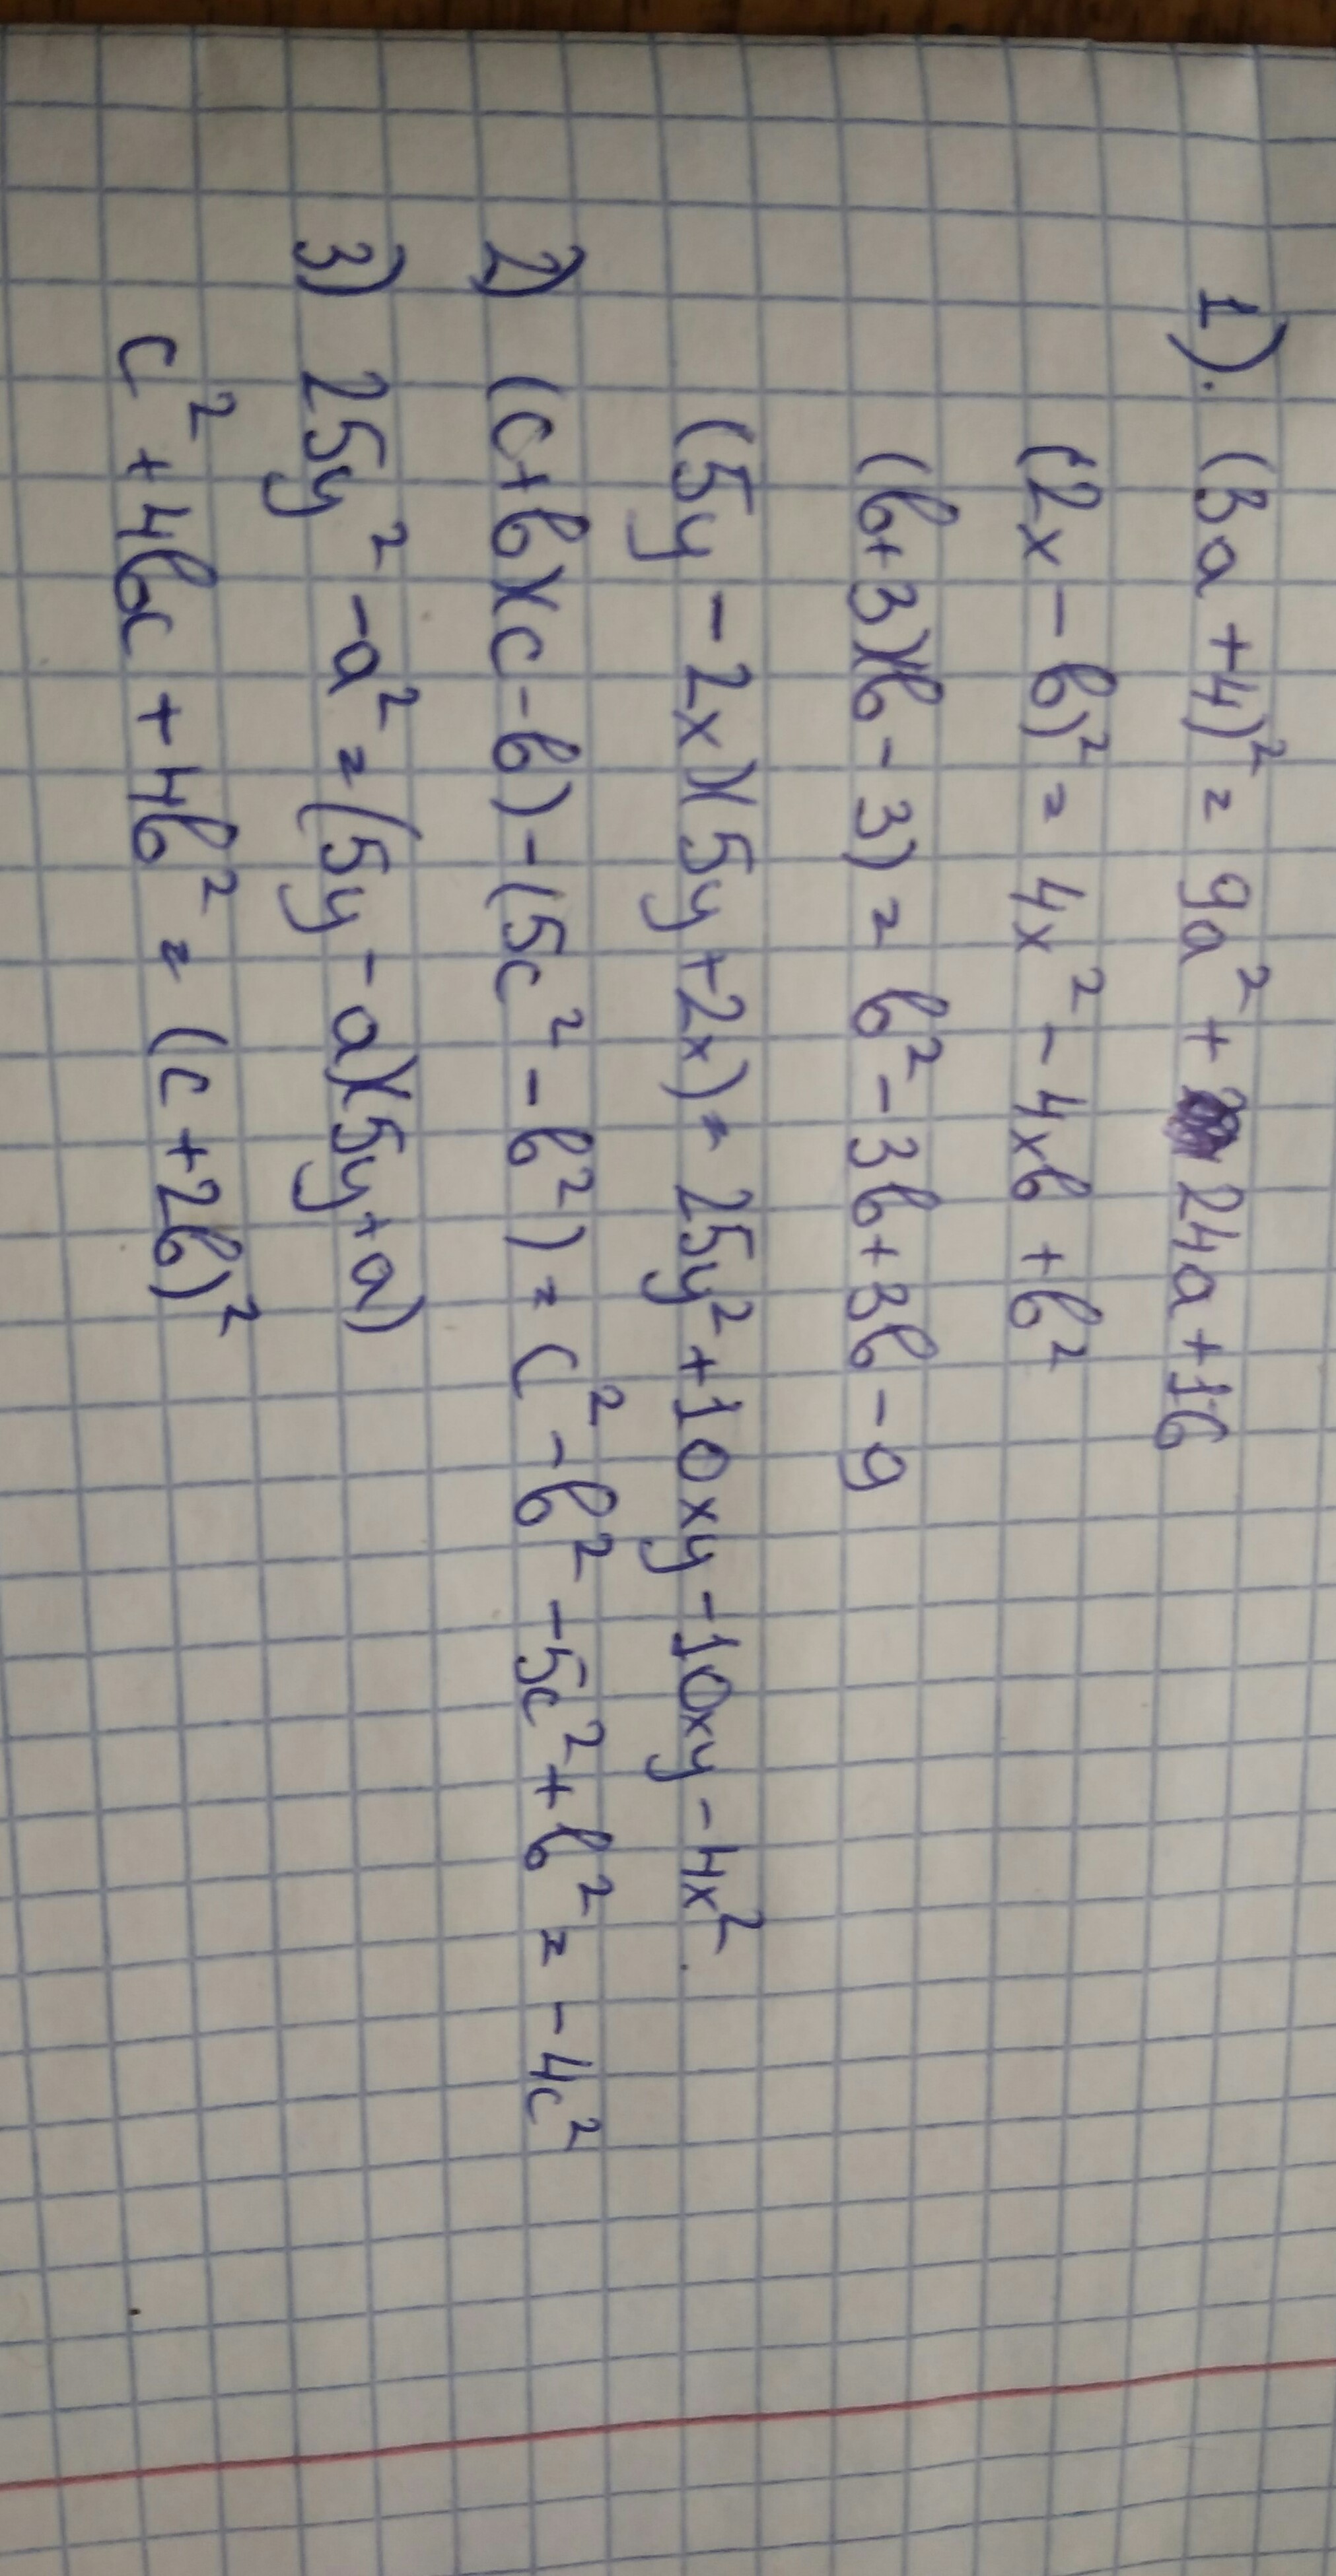 1). (3a + 4)² = 9a² + 24a + 16
(2x - b)² = 4x² - 4xb + b²
(b + 3)(b - 3) = b² - 3b + 3b - 9
(5y - 2x)(5y + 2x) = 25y² + 10xy - 10xy - 4x².
2) (c + b)(c - b) - (5c² - b²) = c² - b² - 5c² + b² = -4c²
3) 25y² - a² = (5y - a)(5y + a)
c² + 4bc + 4b² = (c + 2b)²